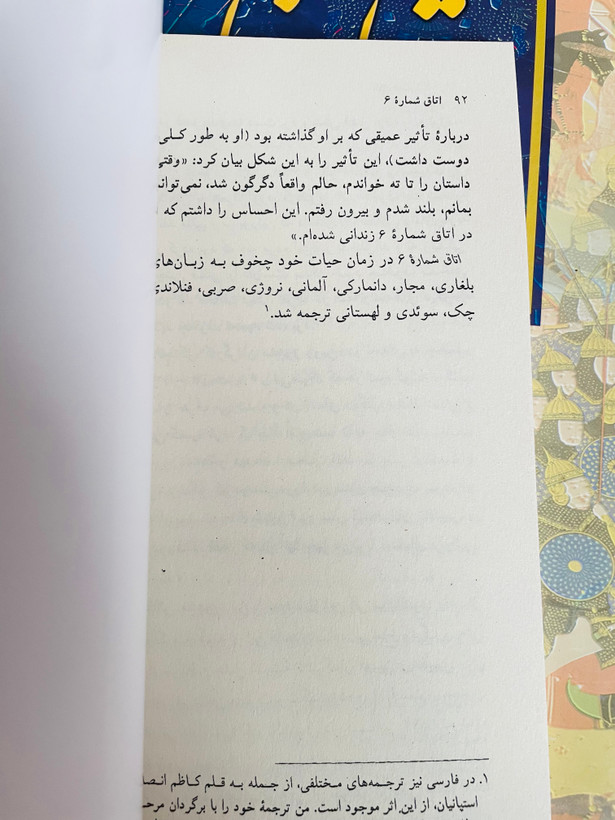 ۹۲ اتاق شمارهٔ ۶
دربارهٔ تأثیر عمیقی که بر او گذاشته بود (او به طور کلی
دوست داشت)، این تأثیر را به این شکل بیان کرد: «وقتی
داستان را تا ته خواندم، حالم واقعاً دگرگون شد، نمی‌توان
بمانم، بلند شدم و بیرون رفتم. این احساس را داشتم که
در اتاق شمارهٔ ۶ زندانی شده‌ام.»
اتاق شمارهٔ ۶ در زمان حیات خود چخوف به زبان‌های
بلغاری، مجار، دانمارکی، آلمانی، نروژی، صربی، فنلاندی
چک، سوئدی و لهستانی ترجمه شد.۱
۱. در فارسی نیز ترجمه‌های مختلفی، از جمله به قلم کاظم انصا
استپانیان، از این اثر موجود است. من ترجمهٔ خود را با برگردان مرحـ